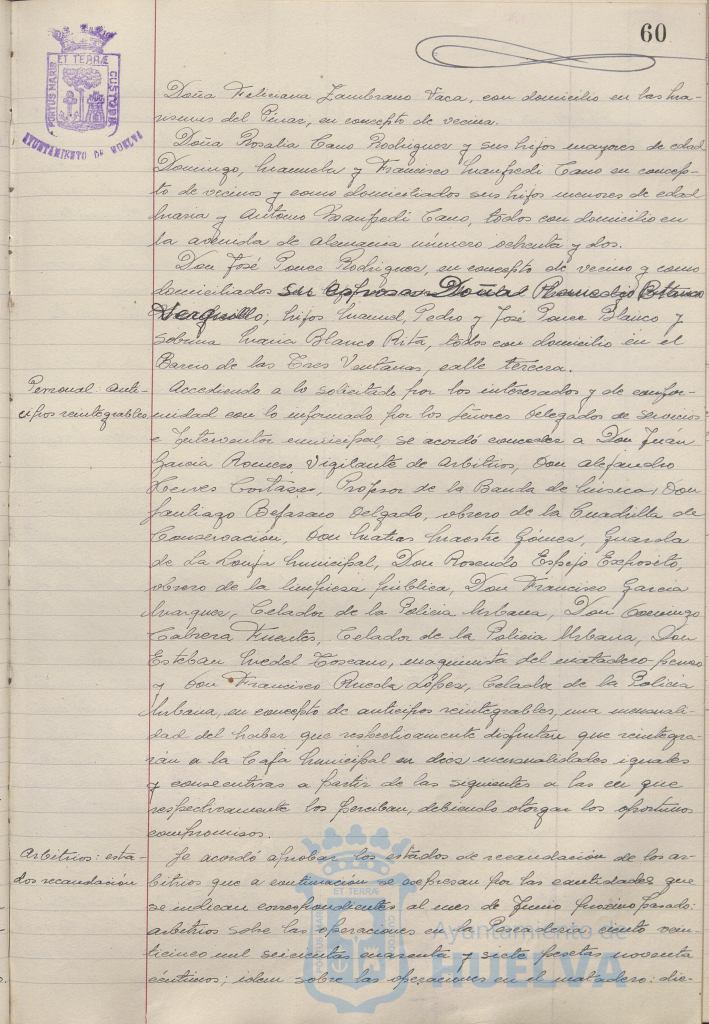 60
PORTUS MARIS ET TERRÆ CUSTODIA
AYUNTAMIENTO DE HUELVA
Doña Feliciana Zambrano Vaca, con domicilio en las
del Pinar, en concepto de vecina.
Doña Rosalia Cano Rodriguez y sus hijos mayores de edad
Domingo, Manuela y Francisco Manfredi Cano en concep-
to de vecinos y como domiciliados sus hijos menores de edad
Maria y Antonio Manfredi Cano, todos con domicilio en
la avenida de Alemania número ochenta y dos.
Don José Ponce Rodriguez, en concepto de vecino y como
domiciliados su esposa Doña Blanco
hijos Manuel, Pedro y José Ponce Blanco y
sobrina Maria Blanco Rita, todos con domicilio en el
Barrio de las Tres Ventanas, calle tercera.
Personal: Anti-
cipos reintegrables
Accediendo a lo solicitado por los interesados y de confor-
midad con lo informado por los Señores Delegados de Servicios
e Interventor municipal, se acordó conceder a Don Juán
Garcia Romero, Vigilante de Arbitrios, Don Alejandro
Cortázar, Profesor de la Banda de Música, Don
Santiago Bejarano Delgado, obrero de la Cuadrilla de
Conservación, Don Matias Maestre Gómez, Guarda
de La Lonja Municipal, Don Rosendo Espejo Expósito,
obrero de la limpieza pública, Don Francisco Garcia
Marquez, Celador de la Policia Urbana, Don Domingo
Cabrera Fuentes, Celador de la Policia Urbana, Don
Esteban Toscano, maquinista del matadero
y Don Francisco Rueda López, Celador de la Policia
Urbana, en concepto de anticipos reintegrables, una mensuali-
dad del haber que respectivamente disfrutan que reintegra-
rán a la Caja Municipal en doce mensualidades iguales
y consecutivas a partir de las siguientes a las en que
respectivamente los perciban, debiendo otorgar los oportunos
compromisos.
Arbitrios: esta-
dos recaudación
Se acordó aprobar los estados de recaudación de los ar-
bitrios que a continuación se expresan por las cantidades que
se indican correspondientes al mes de Junio próximo pasado:
arbitrios sobre las operaciones en la Pescaderia: ciento vein-
ticinco mil seicientas cuarenta y siete pesetas noventa
céntimos; idem sobre las operaciones en el matadero: diez-
Ayuntamiento de
HUELVA